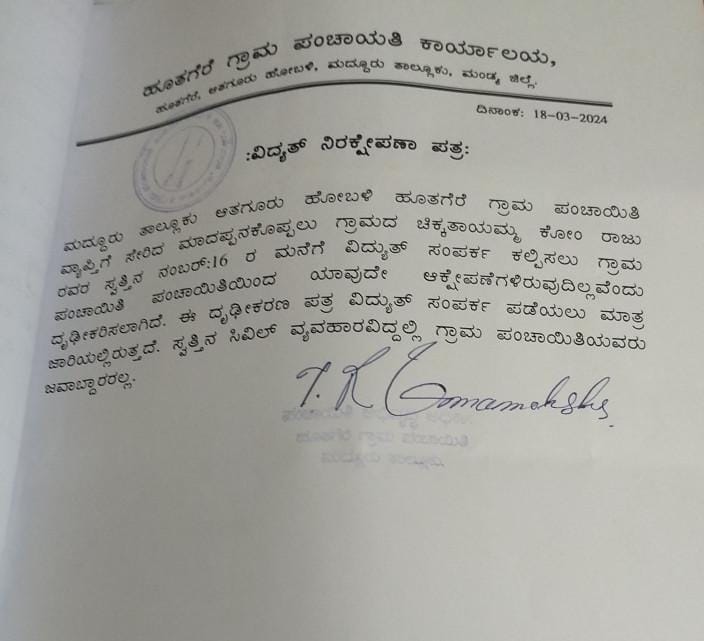 ಹೂತಗೆರೆ ಗ್ರಾಮ ಪಂಚಾಯತಿ ಕಾರ್ಯಾಲಯ,
ಹೂತಗೆರೆ, ಆತಗೂರು ಹೋಬಳಿ, ಮದ್ದೂರು ತಾಲ್ಲೂಕು, ಮಂಡ್ಯ ಜಿಲ್ಲೆ.
ದಿನಾಂಕ: 18-03-2024
:ವಿದ್ಯುತ್ ನಿರಕ್ಷೇಪಣಾ ಪತ್ರ:
ಮದ್ದೂರು ತಾಲ್ಲೂಕು ಆತಗೂರು ಹೋಬಳಿ ಹೂತಗೆರೆ ಗ್ರಾಮ ಪಂಚಾಯಿತಿ
ವ್ಯಾಪ್ತಿಗೆ ಸೇರಿದ ಮಾದಪ್ಪನಕೊಪ್ಪಲು ಗ್ರಾಮದ ಚಿಕ್ಕತಾಯಮ್ಮ ಕೋಂ ರಾಜು
ರವರ ಸ್ವತ್ತಿನ ನಂಬರ್:16 ರ ಮನೆಗೆ ವಿದ್ಯುತ್ ಸಂಪರ್ಕ ಕಲ್ಪಿಸಲು ಗ್ರಾಮ
ಪಂಚಾಯಿತಿ ಪಂಚಾಯಿತಿಯಿಂದ ಯಾವುದೇ ಆಕ್ಷೇಪಣೆಗಳಿರುವುದಿಲ್ಲವೆಂದು
ದೃಢೀಕರಿಸಲಾಗಿದೆ. ಈ ದೃಢೀಕರಣ ಪತ್ರ ವಿದ್ಯುತ್ ಸಂಪರ್ಕ ಪಡೆಯಲು ಮಾತ್ರ
ಜಾರಿಯಲ್ಲಿರುತ್ತದೆ. ಸ್ವತ್ತಿನ ಸಿವಿಲ್ ವ್ಯವಹಾರವಿದ್ದಲ್ಲಿ ಗ್ರಾಮ ಪಂಚಾಯಿತಿಯವರು
ಜವಾಬ್ದಾರರಲ್ಲ.
ಹೂತಗೆರೆ ಗ್ರಾಮ ಪಂಚಾಯಿತಿ
ಮದ್ದೂರು ತಾಲ್ಲೂಕು